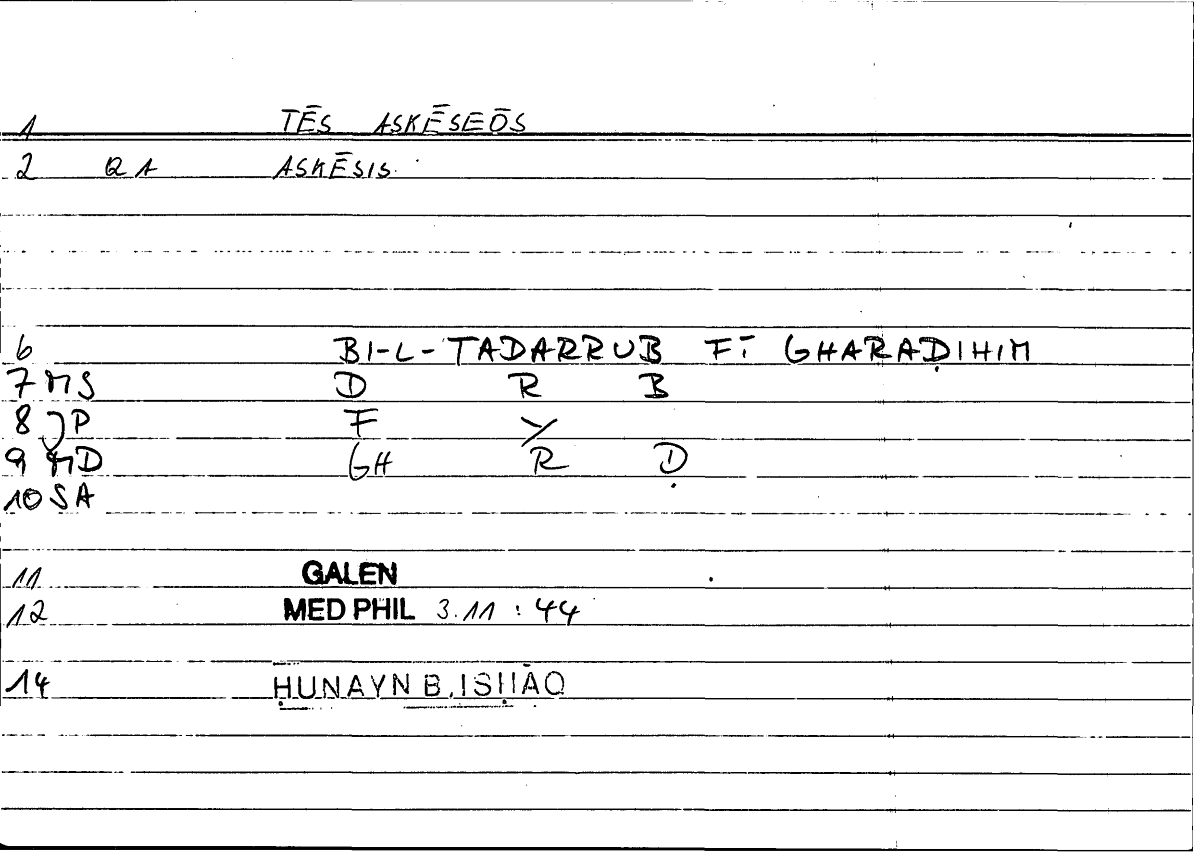 1 TĒS ASKĒSEŌS
2 QA ASKĒSIS
6 BI-L-TADARRUB FĪ GHARAḌIHIM
7 MS D R B
8 JP F Y
9 MD GH R Ḍ
10 SA
11 GALEN
12 MED PHIL 3.11 : 44
14 ḤUNAYN B. ISḤĀQ